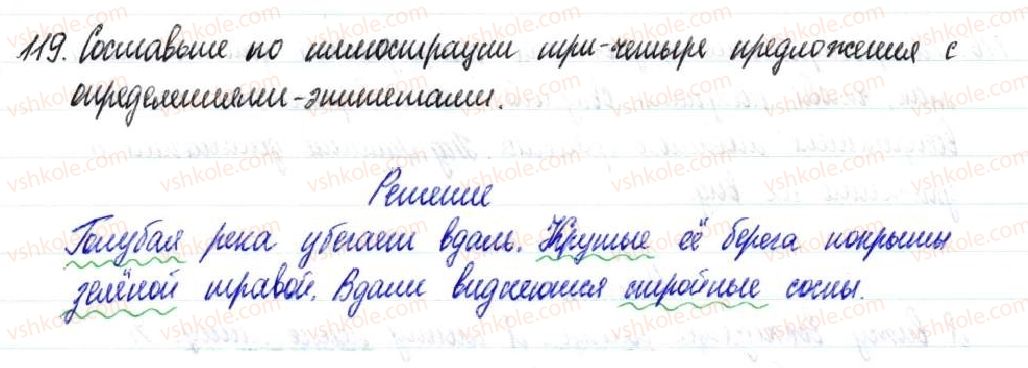 119. Составьте по иллюстрации три-четыре предложения с
определениями-эпитетами.
Решение
Голубая река убегает вдаль. Крутые её берега покрыты
зелёной травой. Вдали виднеются стройные сосны.